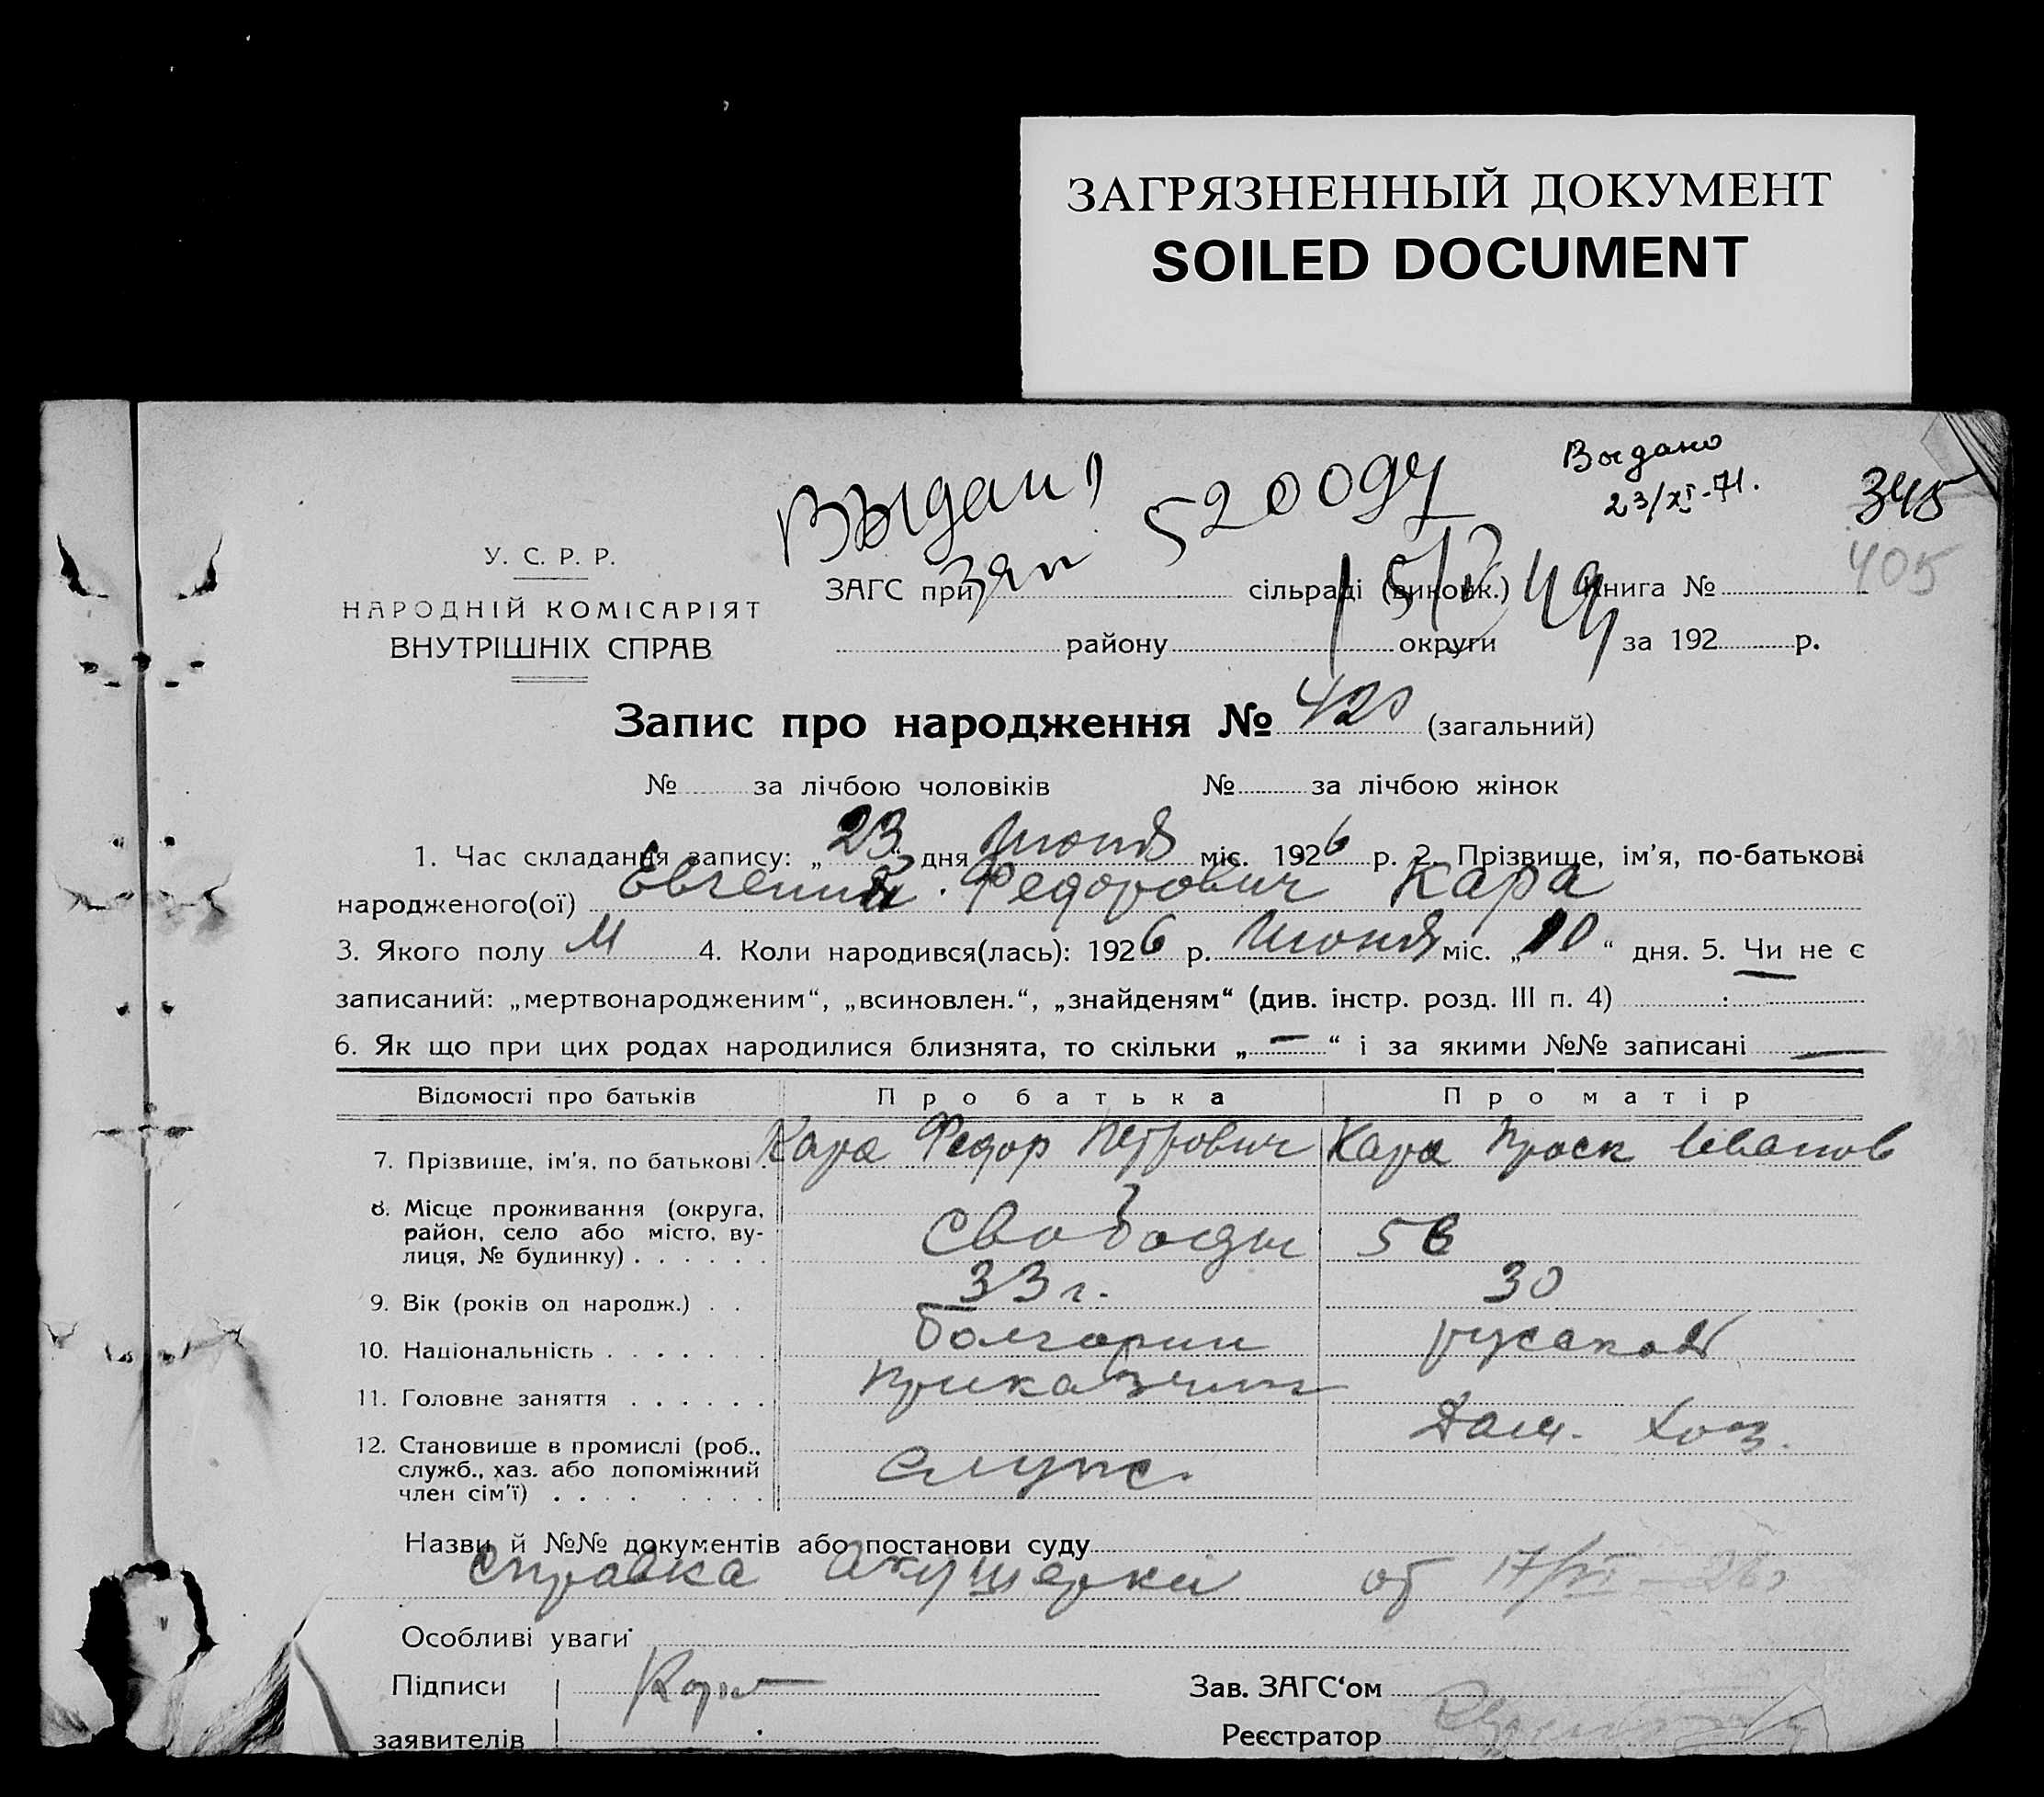 ЗАГРЯЗНЕННЫЙ ДОКУМЕНТ
SOILED DOCUMENT
Выдано
23/XI-71.
345
405
У. С. Р. Р.
НАРОДНІЙ КОМІСАРІЯТ
ВНУТРІШНІХ СПРАВ
ЗАГС при сільраді (виконк.) Книга №
району округи за 192 р.
Запис про народження № 420 (загальний)
№ за лічбою чоловіків № за лічбою жінок
1. Час складання запису: „23“ дня Июня міс. 1926 р. 2. Прізвище, ім'я, по-батькові
народженого(ої) Евгений Федорович Кара
3. Якого полу М 4. Коли народився(лась): 1926 р. Июня міс. „10“ дня. 5. Чи не є
записаний: „мертвонародженим“, „всиновлен.“, „знайденям“ (див. інстр. розд. III п. 4)
6. Як що при цих родах народилися близнята, то скільки „—“ і за якими №№ записані —
Відомості про батьків Про батька Про матір
7. Прізвище, ім'я, по батькові . Кара Федор Петрович Кара Праск Иванов
8. Місце проживання (округа,
район, село або місто, ву-
лиця, № будинку) . . . . . . Свободы 56
9. Вік (років од народж.) . . 33 г. 30
10. Національність . . . . . . . болгарин русская
11. Головне заняття . . . . . . приказчик
Дом. Хоз.
12. Становище в промислі (роб.,
служб., хаз. або допоміжний
член сім'ї) . . . . . . . . служ.
Назви й №№ документів або постанови суду
справка акушерки от 17/VI-26 г
Особливі уваги
Підписи
заявителів
Зав. ЗАГС'ом
Реєстратор